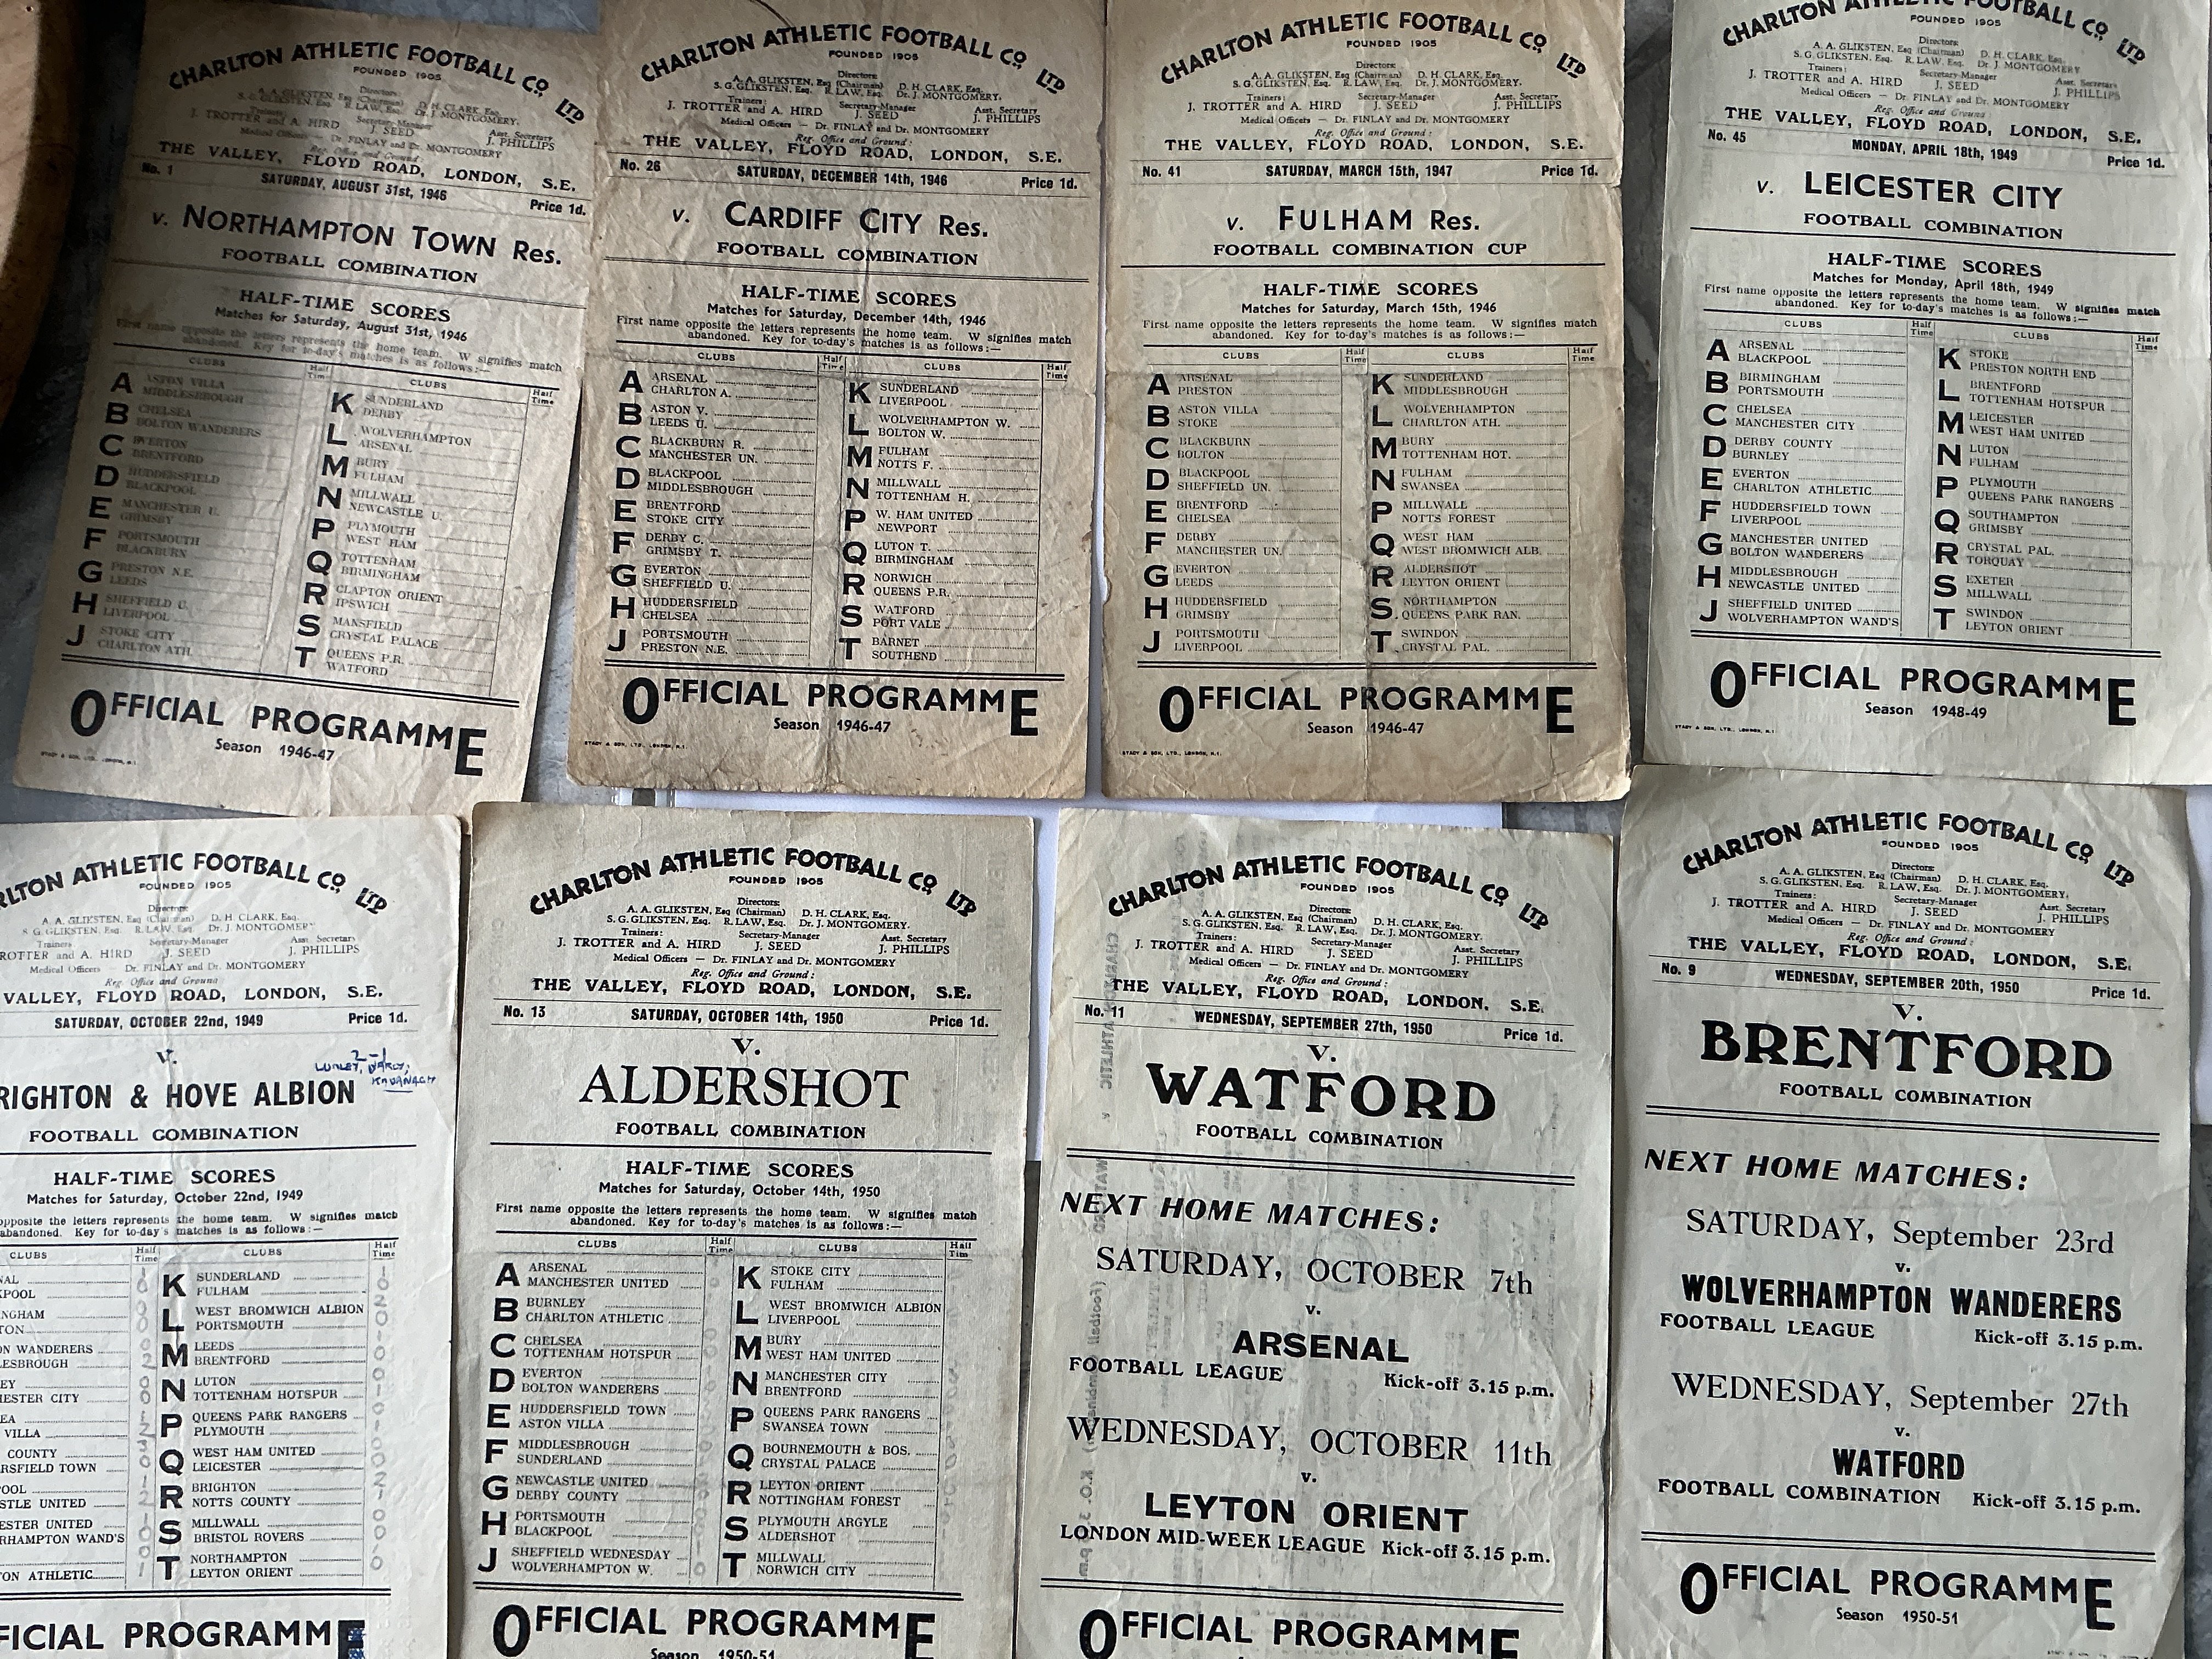 CHARLTON ATHLETIC FOOTBALL CO LTD
FOUNDED 1905
Directors:
A. A. GLIKSTEN, Esq (Chairman) D. H. CLARK, Esq.
S. G. GLIKSTEN, Esq. R. LAW, Esq. Dr. J. MONTGOMERY.
Trainers: Secretary-Manager Asst. Secretary
J. TROTTER and A. HIRD J. SEED J. PHILLIPS
Medical Officers — Dr. FINLAY and Dr. MONTGOMERY
Reg. Office and Ground
THE VALLEY, FLOYD ROAD, LONDON, S.E.
No. 1 SATURDAY, AUGUST 31st, 1946 Price 1d.
v. NORTHAMPTON TOWN Res.
FOOTBALL COMBINATION
HALF-TIME SCORES
Matches for Saturday, August 31st, 1946
First name opposite the letters represents the home team. W signifies match
abandoned. Key for to-day's matches is as follows:—
CLUBS Half Time CLUBS Half Time
A ASTON VILLA MIDDLESBROUGH
B CHELSEA BOLTON WANDERERS
C EVERTON BRENTFORD
D HUDDERSFIELD BLACKPOOL
E MANCHESTER U. GRIMSBY
F PORTSMOUTH BLACKBURN
G PRESTON N.E. LEEDS
H SHEFFIELD U. LIVERPOOL
J STOKE CITY CHARLTON ATH.
K SUNDERLAND DERBY
L WOLVERHAMPTON ARSENAL
M BURY FULHAM
N MILLWALL NEWCASTLE U.
P PLYMOUTH WEST HAM
Q TOTTENHAM BIRMINGHAM
R CLAPTON ORIENT IPSWICH
S MANSFIELD CRYSTAL PALACE
T QUEENS P.R. WATFORD
OFFICIAL PROGRAMME
Season 1946-47
STACY & SON, LTD., LONDON, N.1.
CHARLTON ATHLETIC FOOTBALL CO LTD
FOUNDED 1905
Directors:
A. A. GLIKSTEN, Esq (Chairman) D. H. CLARK, Esq.
S. G. GLIKSTEN, Esq. R. LAW, Esq. Dr. J. MONTGOMERY.
Trainers: Secretary-Manager Asst. Secretary
J. TROTTER and A. HIRD J. SEED J. PHILLIPS
Medical Officers — Dr. FINLAY and Dr. MONTGOMERY
Reg. Office and Ground :
THE VALLEY, FLOYD ROAD, LONDON, S.E.
No. 26 SATURDAY, DECEMBER 14th, 1946 Price 1d.
v. CARDIFF CITY Res.
FOOTBALL COMBINATION
HALF-TIME SCORES
Matches for Saturday, December 14th, 1946
First name opposite the letters represents the home team. W signifies match
abandoned. Key for to-day's matches is as follows:—
CLUBS Half Time CLUBS Half Time
A ARSENAL CHARLTON A.
B ASTON V. LEEDS U.
C BLACKBURN R. MANCHESTER UN.
D BLACKPOOL MIDDLESBROUGH
E BRENTFORD STOKE CITY
F DERBY C. GRIMSBY T.
G EVERTON SHEFFIELD U.
H HUDDERSFIELD CHELSEA
J PORTSMOUTH PRESTON N.E.
K SUNDERLAND LIVERPOOL
L WOLVERHAMPTON W. BOLTON W.
M FULHAM NOTTS F.
N MILLWALL TOTTENHAM H.
P W. HAM UNITED NEWPORT
Q LUTON T. BIRMINGHAM
R NORWICH QUEENS P.R.
S WATFORD PORT VALE
T BARNET SOUTHEND
OFFICIAL PROGRAMME
Season 1946-47
STACY & SON, LTD., LONDON, N.1.
CHARLTON ATHLETIC FOOTBALL CO LTD
FOUNDED 1905
Directors:
A. A. GLIKSTEN, Esq (Chairman) D. H. CLARK, Esq.
S. G. GLIKSTEN, Esq. R. LAW, Esq. Dr. J. MONTGOMERY.
Trainers: Secretary-Manager Asst. Secretary
J. TROTTER and A. HIRD J. SEED J. PHILLIPS
Medical Officers — Dr. FINLAY and Dr. MONTGOMERY
Reg. Office and Ground :
THE VALLEY, FLOYD ROAD, LONDON, S.E.
No. 41 SATURDAY, MARCH 15th, 1947 Price 1d.
v. FULHAM Res.
FOOTBALL COMBINATION CUP
HALF-TIME SCORES
Matches for Saturday, March 15th, 1946
First name opposite the letters represents the home team. W signifies match
abandoned. Key for to-day's matches is as follows:—
CLUBS Half Time CLUBS Half Time
A ARSENAL PRESTON
B ASTON VILLA STOKE
C BLACKBURN BOLTON
D BLACKPOOL SHEFFIELD UN.
E BRENTFORD CHELSEA
F DERBY MANCHESTER UN.
G EVERTON LEEDS
H HUDDERSFIELD GRIMSBY
J PORTSMOUTH LIVERPOOL
K SUNDERLAND MIDDLESBROUGH
L WOLVERHAMPTON CHARLTON ATH.
M BURY TOTTENHAM HOT.
N FULHAM SWANSEA
P MILLWALL NOTTS FOREST
Q WEST HAM WEST BROMWICH ALB.
R ALDERSHOT LEYTON ORIENT
S NORTHAMPTON QUEENS PARK RAN.
T SWINDON CRYSTAL PAL.
OFFICIAL PROGRAMME
Season 1946-47
STACY & SON, LTD., LONDON, N.1.
CHARLTON ATHLETIC FOOTBALL CO LTD
FOUNDED 1905
Directors:
A. A. GLIKSTEN, Esq (Chairman) D. H. CLARK, Esq.
S. G. GLIKSTEN, Esq. R. LAW, Esq. Dr. J. MONTGOMERY
Trainers: Secretary-Manager Asst. Secretary
J. TROTTER and A. HIRD J. SEED J. PHILLIPS
Medical Officers — Dr. FINLAY and Dr. MONTGOMERY
Reg. Office and Ground
THE VALLEY, FLOYD ROAD, LONDON, S.E.
No. 45 MONDAY, APRIL 18th, 1949 Price 1d.
v. LEICESTER CITY
FOOTBALL COMBINATION
HALF-TIME SCORES
Matches for Monday, April 18th, 1949
First name opposite the letters represents the home team. W signifies match
abandoned. Key for to-day's matches is as follows:—
CLUBS Half Time CLUBS Half Time
A ARSENAL BLACKPOOL
B BIRMINGHAM PORTSMOUTH
C CHELSEA MANCHESTER CITY
D DERBY COUNTY BURNLEY
E EVERTON CHARLTON ATHLETIC
F HUDDERSFIELD TOWN LIVERPOOL
G MANCHESTER UNITED BOLTON WANDERERS
H MIDDLESBROUGH NEWCASTLE UNITED
J SHEFFIELD UNITED WOLVERHAMPTON WAND'S
K STOKE PRESTON NORTH END
L BRENTFORD TOTTENHAM HOTSPUR
M LEICESTER WEST HAM UNITED
N LUTON FULHAM
P PLYMOUTH QUEENS PARK RANGERS
Q SOUTHAMPTON GRIMSBY
R CRYSTAL PAL. TORQUAY
S EXETER MILLWALL
T SWINDON LEYTON ORIENT
OFFICIAL PROGRAMME
Season 1948-49
STACY & SON, LTD., LONDON, N.1.
RLTON ATHLETIC FOOTBALL CO LTD
FOUNDED 1905
Directors:
A. A. GLIKSTEN, Esq (Chairman) D. H. CLARK, Esq.
S G. GLIKSTEN, Esq. R. LAW, Esq. Dr. J MONTGOMERY
Trainers Secretary-Manager Asst. Secretary
ROTTER and A. HIRD J. SEED J. PHILLIPS
Medical Officers — Dr. FINLAY and Dr. MONTGOMERY
Reg. Office and Ground
VALLEY, FLOYD ROAD, LONDON, S.E.
SATURDAY, OCTOBER 22nd, 1949 Price 1d.
v. 2-1
LUMLEY, D'ARCY,
KAVANAGH
RIGHTON & HOVE ALBION
FOOTBALL COMBINATION
HALF-TIME SCORES
Matches for Saturday, October 22nd, 1949
opposite the letters represents the home team. W signifies match
abandoned. Key for to-day's matches is as follows:—
CLUBS Half Time CLUBS Half Time
NAL KPOOL
NGHAM TON
N WANDERERS ESBROUGH
EY HESTER CITY
EA VILLA
COUNTY RSFIELD TOWN
OOL STLE UNITED
ESTER UNITED RHAMPTON WAND'S
ON ATHLETIC
K SUNDERLAND FULHAM
L WEST BROMWICH ALBION PORTSMOUTH
M LEEDS BRENTFORD
N LUTON TOTTENHAM HOTSPUR
P QUEENS PARK RANGERS PLYMOUTH
Q WEST HAM UNITED LEICESTER
R BRIGHTON NOTTS COUNTY
S MILLWALL BRISTOL ROVERS
T NORTHAMPTON LEYTON ORIENT
FICIAL PROGRAMME
CHARLTON ATHLETIC FOOTBALL CO LTD
FOUNDED 1905
Directors:
A. A. GLIKSTEN, Esq (Chairman) D. H. CLARK, Esq.
S. G. GLIKSTEN, Esq. R. LAW, Esq. Dr. J. MONTGOMERY.
Trainers: Secretary-Manager Asst. Secretary
J. TROTTER and A. HIRD J. SEED J. PHILLIPS
Medical Officers — Dr. FINLAY and Dr. MONTGOMERY
Reg. Office and Ground :
THE VALLEY, FLOYD ROAD, LONDON, S.E.
No. 13 SATURDAY, OCTOBER 14th, 1950 Price 1d.
v.
ALDERSHOT
FOOTBALL COMBINATION
HALF-TIME SCORES
Matches for Saturday, October 14th, 1950
First name opposite the letters represents the home team. W signifies match
abandoned. Key for to-day's matches is as follows:—
CLUBS Half Time CLUBS Half Tim
A ARSENAL MANCHESTER UNITED
B BURNLEY CHARLTON ATHLETIC
C CHELSEA TOTTENHAM HOTSPUR
D EVERTON BOLTON WANDERERS
E HUDDERSFIELD TOWN ASTON VILLA
F MIDDLESBROUGH SUNDERLAND
G NEWCASTLE UNITED DERBY COUNTY
H PORTSMOUTH BLACKPOOL
J SHEFFIELD WEDNESDAY WOLVERHAMPTON W.
K STOKE CITY FULHAM
L WEST BROMWICH ALBION LIVERPOOL
M BURY WEST HAM UNITED
N MANCHESTER CITY BRENTFORD
P QUEENS PARK RANGERS SWANSEA TOWN
Q BOURNEMOUTH & BOS. CRYSTAL PALACE
R LEYTON ORIENT NOTTINGHAM FOREST
S PLYMOUTH ARGYLE ALDERSHOT
T MILLWALL NORWICH CITY
OFFICIAL PROGRAMME
Season 1950-51
CHARLTON ATHLETIC FOOTBALL CO LTD
FOUNDED 1905
Directors:
A. A. GLIKSTEN, Esq (Chairman) D. H. CLARK, Esq.
S. G. GLIKSTEN, Esq. R. LAW, Esq. Dr. J. MONTGOMERY.
Trainers: Secretary-Manager Asst. Secretary
J. TROTTER and A. HIRD J. SEED J. PHILLIPS
Medical Officers — Dr. FINLAY and Dr. MONTGOMERY
Reg. Office and Ground :
THE VALLEY, FLOYD ROAD, LONDON, S.E.
No. 11 WEDNESDAY, SEPTEMBER 27th, 1950 Price 1d.
v.
WATFORD
FOOTBALL COMBINATION
NEXT HOME MATCHES:
SATURDAY, OCTOBER 7th
v.
ARSENAL
FOOTBALL LEAGUE Kick-off 3.15 p.m.
WEDNESDAY, OCTOBER 11th
v.
LEYTON ORIENT
LONDON MID-WEEK LEAGUE Kick-off 3.15 p.m.
OFFICIAL PROGRAMME
CHARLTON ATHLETIC FOOTBALL CO LTD
FOUNDED 1905
Directors:
A. A. GLIKSTEN, Esq (Chairman) D. H. CLARK, Esq.
S. G. GLIKSTEN, Esq. R. LAW, Esq. Dr. J. MONTGOMERY.
Trainers: Secretary-Manager Asst. Secretary
J. TROTTER and A. HIRD J. SEED J. PHILLIPS
Medical Officers — Dr. FINLAY and Dr. MONTGOMERY
Reg. Office and Ground :
THE VALLEY, FLOYD ROAD, LONDON, S.E.
No. 9 WEDNESDAY, SEPTEMBER 20th, 1950 Price 1d.
v.
BRENTFORD
FOOTBALL COMBINATION
NEXT HOME MATCHES:
SATURDAY, September 23rd
v.
WOLVERHAMPTON WANDERERS
FOOTBALL LEAGUE Kick-off 3.15 p.m.
WEDNESDAY, September 27th
v.
WATFORD
FOOTBALL COMBINATION Kick-off 3.15 p.m.
OFFICIAL PROGRAMME
Season 1950-51